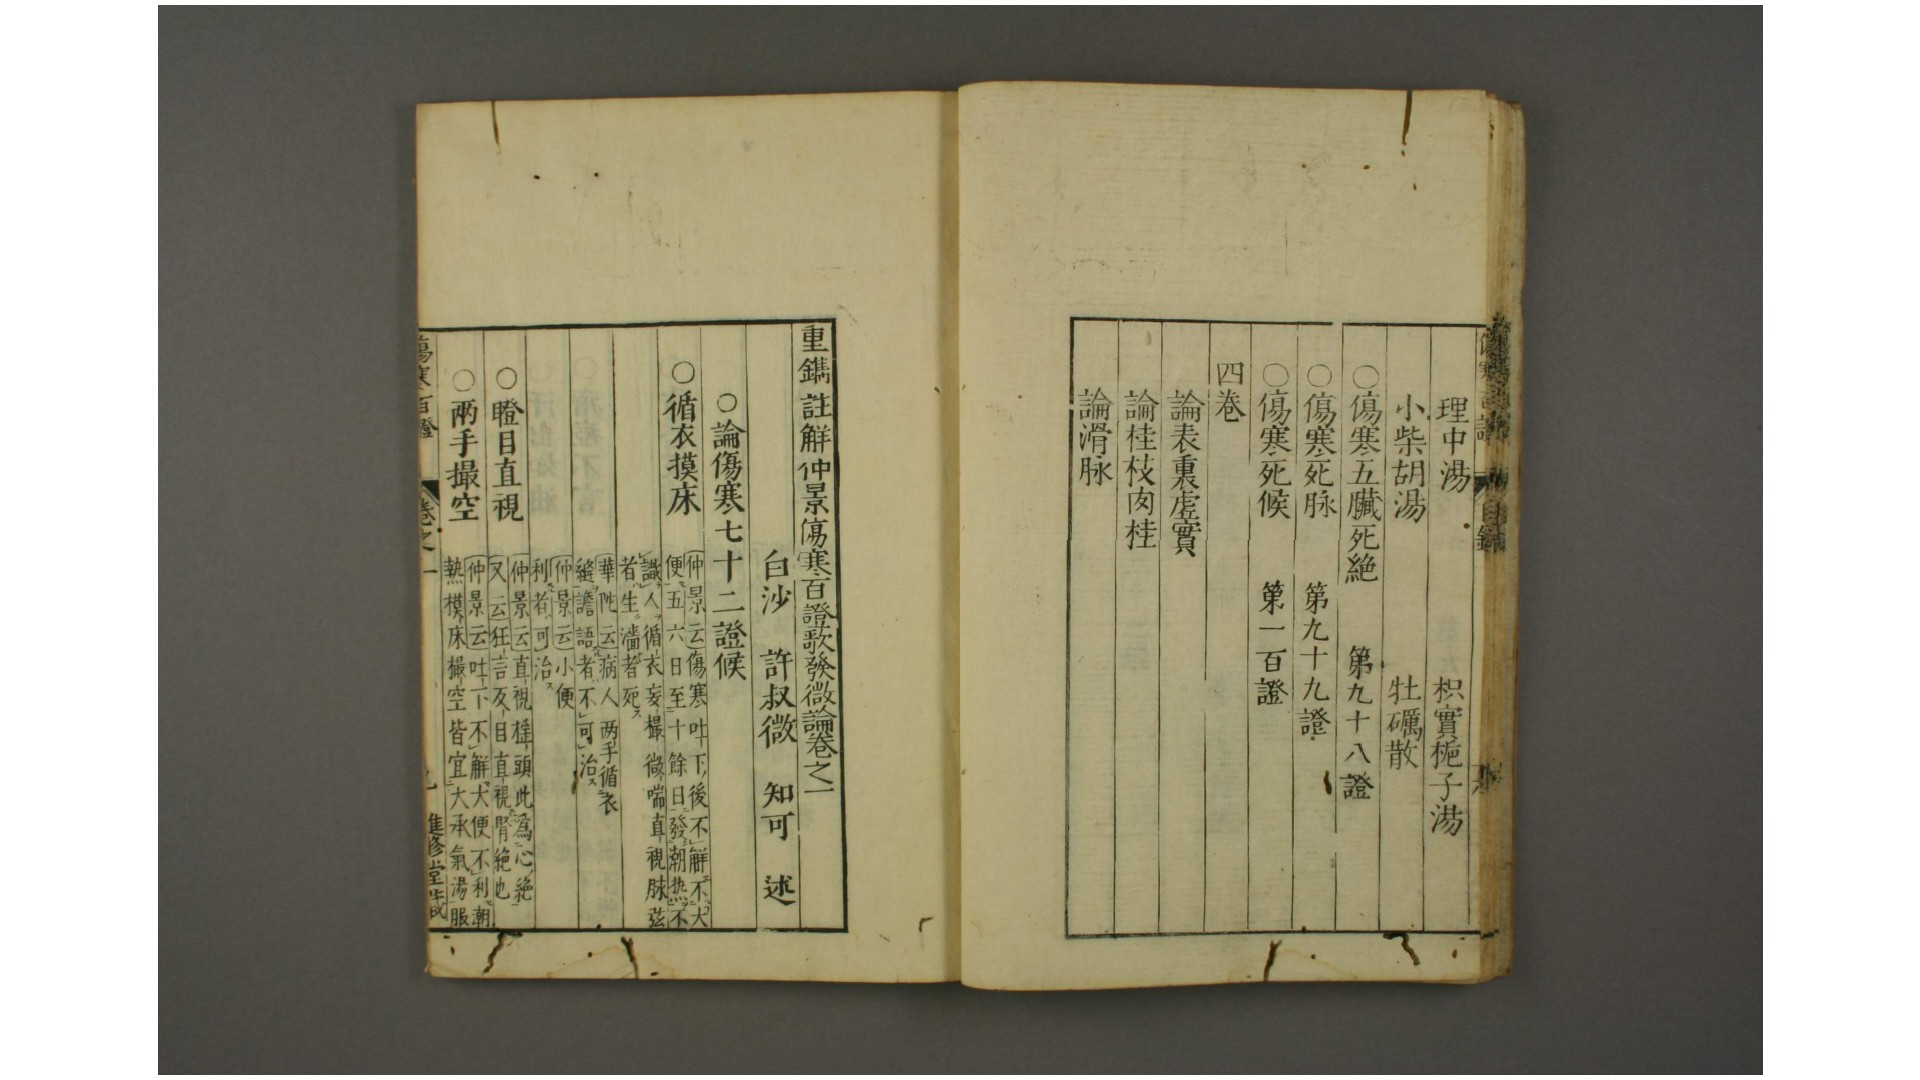 理中湯 枳實梔子湯
小柴胡湯 牡礪散
○傷寒五臟死絶 第九十八證
○傷寒死脉 第九十九證
○傷寒死候 第一百證
四卷
論表裏虛實
論桂枝肉桂
論滑脉
重鐫註解仲景傷寒百證歌發微論卷之一
白沙 許叔微 知可 述
○論傷寒七十二證候
○循衣摸床
仲景云傷寒吐下後不解不大
便五六日至十餘日發潮热不
識人循衣妄撮微喘直視脉弦
者生濇者死
華陀云病人兩手循衣
縫譫語者不可治
仲景云小便
利者可治
○瞪目直視
仲景云直視搖頭此爲心絶
又云狂言反目直視腎絶也
○兩手撮空
仲景云吐下不解大便不利潮
熱摸床撮空皆宜大承氣湯服
傷寒百證 卷之一
進修堂藏